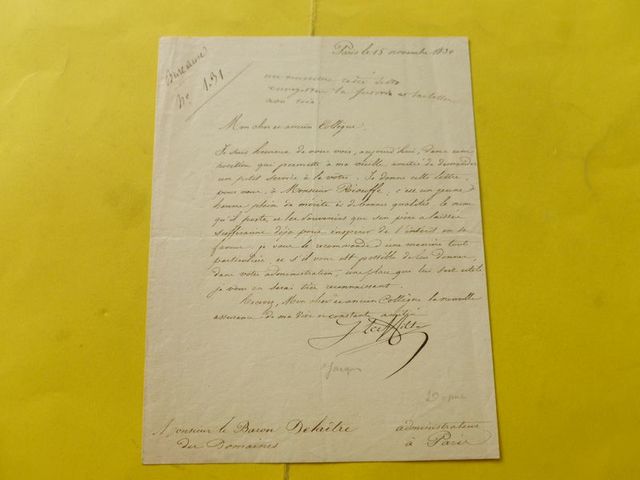 Paris le 15 novembre 1830
N° 131
Mon cher et ancien Collègue,
Je suis heureux de vous voir, aujourd'hui, dans une
position qui permette à ma vieille amitié de demander
un petit service à la vôtre. Je donne cette lettre
pour vous, à Monsieur Riouffe, c'est un jeune
homme plein de mérite et de bonnes qualités, le nom
qu'il porte, et les souvenirs que son père a laissés
déjà pour inspirer de l'intérêt en sa
faveur, je vous le recommande d'une manière tout
particulière, et s'il vous est possible de lui donner
dans votre administration, une place qui lui soit utile
je vous en serai très reconnaissant.
Mon cher et ancien Collègue la nouvelle
assurance de ma vive et constante amitié
J. Laffitte
Jacques
Monsieur le Baron administrateur
des Domaines à Paris